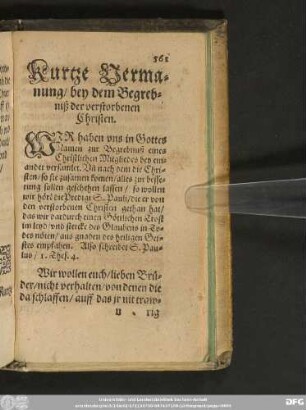 361
Kurtze Verma-
nung/ bey dem Begreb-
niß der verstorbenen
Christen.
WIR haben vns in Gottes
Namen zur Begrebnuß eines
Christlichen Mitgliedes bey ein-
ander versamlet. Vñ nach dem die Chri-
sten/ so sie zusamen komen/ alles zur besse-
rung sollen geschehen lassen / so wollen
wir hörẽ die Predigt S. Pauli/ die er von
den verstorbenen Christen gethan hat/
das wir dardurch einen Göttlichen Trost
im leyd/ vnd stercke des Glaubens in To-
des nöten/ aus gnaden des heiligen Gei-
stes empfahen. Also schreibet S. Pau-
lus / 1. Thes. 4.
Wir wollen euch/ lieben Brü-
der/ nicht verhalten/ von denen die
da schlaffen/ auff das jr nit traw-
rig